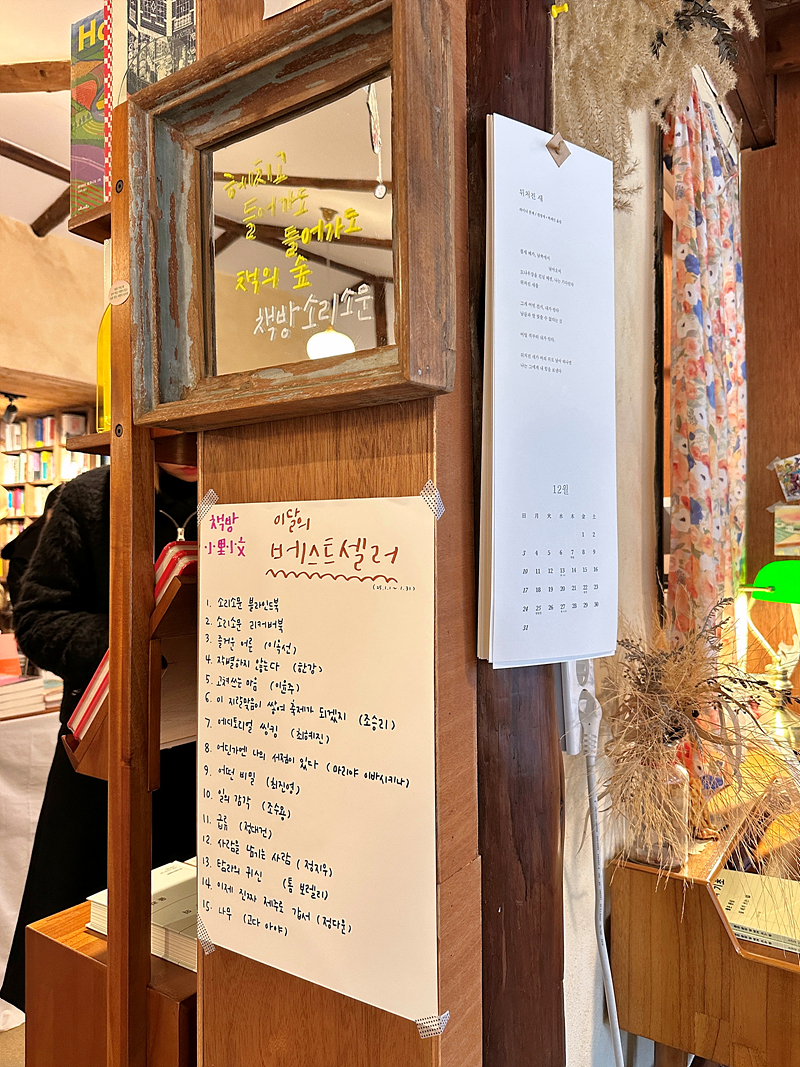 Ho
헤치고
들어가도
들어가도
책의 숲
책방 소리소문
책방
小里小文
이달의
베스트셀러
(25.1.1 ~ 1.31)
1. 소리소문 블라인드북
2. 소리소문 리커버북
3. 즐거운 어른 (이옥선)
4. 작별하지 않는다 (한강)
5. 고쳐쓰는 마음 (이윤주)
6. 이 지랄맞음이 쌓여 축제가 되겠지 (조승리)
7. 에디토리얼 씽킹 (최혜진)
8. 어딘가엔 나의 서점이 있다 (마리야 이바시키나)
9. 어떤 비밀 (최진영)
10. 일의 감각 (조수용)
11. 급류 (정대건)
12. 사람을 남기는 사람 (정지우)
13. 탐라의 귀신 (톰 보렐리)
14. 이제 진짜 제주로 갑서 (정다운)
15. 나무 (고다 아야)
뒤처진 새
12월
日 月 火 水 木 金 土
1 2
3 4 5 6 7 8 9
10 11 12 13 14 15 16
17 18 19 20 21 22 23
24 25 26 27 28 29 30
31